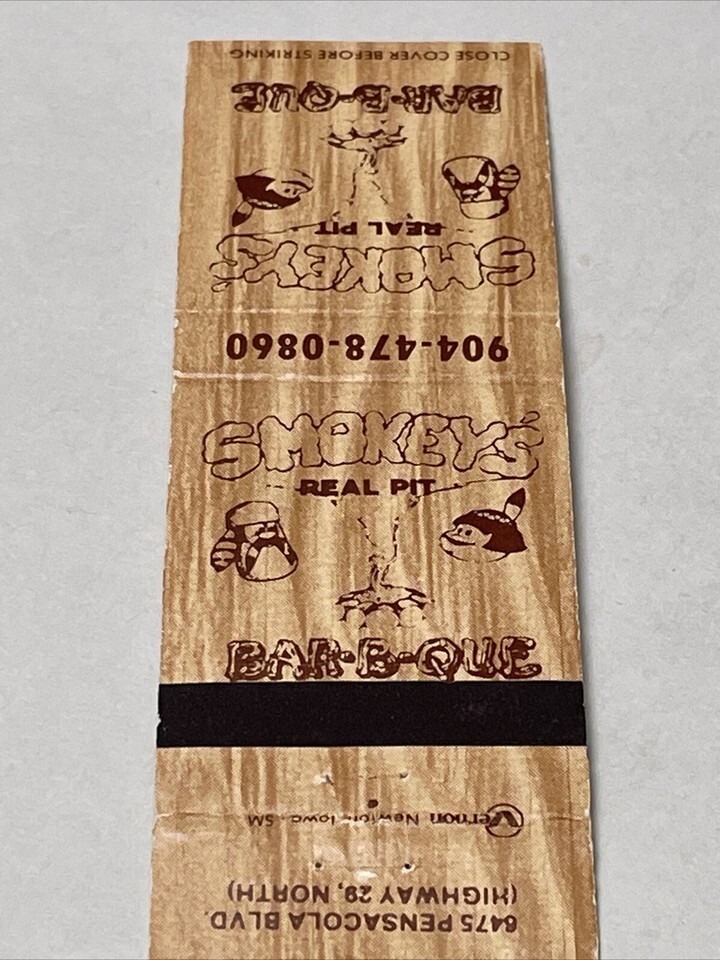 CLOSE COVER BEFORE STRIKING
BAR-B-QUE
REAL PIT
SMOKEY'S
904-478-0860
SMOKEY'S
REAL PIT
BAR-B-QUE
Vernon Newton, Iowa SM
6475 PENSACOLA BLVD.
(HIGHWAY 29, NORTH)